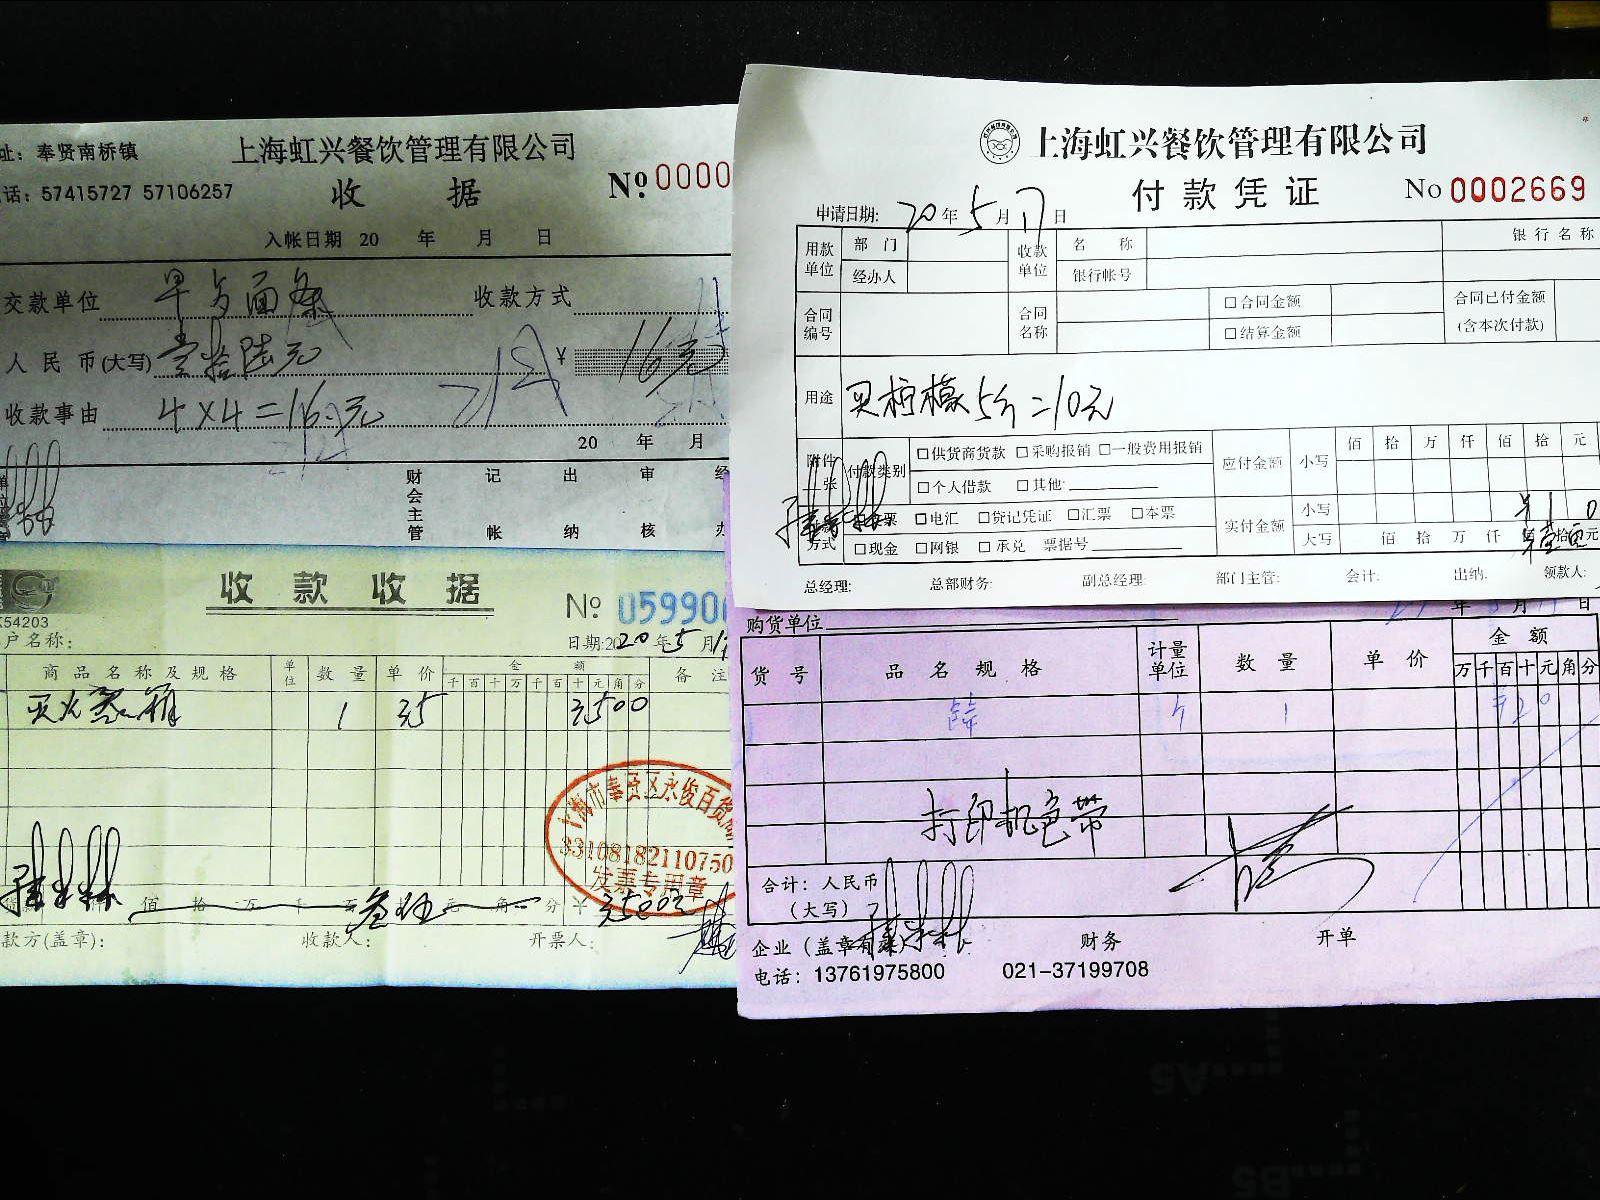 址：奉贤南桥镇
上海虹兴餐饮管理有限公司
话：57415727 57106257
收 据
Nº 0000
入帐日期 20 年 月 日
交款单位 早与面条 收款方式
人民币(大写) 壹拾陆元 ¥ 16元
收款事由 4×4=16元
20 年 月
财会主管 记帐 出纳 审核 经办
收款收据
Nº 059900
K54203
户名称:
日期:2020年5月17
商品名称及规格 单位 数量 单价 金额 备注
千百十万千百十元角分
灭火器箱 1 35 3500
上海市奉贤区永俊百货
33108182110750
发票专用章
佰 拾 万 千 百 叁拾伍元 角 分 ¥ 3500
款方(盖章): 收款人: 开票人:
上海虹兴餐饮管理有限公司
付款凭证
No 0002669
申请日期: 20年5月17日
用款单位 部门 收款单位 名称 银行名称
经办人 银行帐号
合同编号 合同名称 □合同金额 合同已付金额
□结算金额 (含本次付款)
用途 买柠檬5个=10元
附件 张 付款类别 □供货商货款 □采购报销 □一般费用报销
□个人借款 □其他:
应付金额 小写 佰拾万仟佰拾元
方式 票 □电汇 □贷记凭证 □汇票 □本票
□现金 □网银 □承兑 票据号
实付金额 小写 ¥10
大写 佰拾万仟佰壹拾元
总经理: 总部财务: 副总经理: 部门主管: 会计: 出纳: 领款人:
年 月 日
购货单位
货号 品名规格 计量单位 数量 单价 金额
万千百十元角分
个 1 ¥20
打印机色带
合计：人民币
（大写）
企业（盖章有效） 财务 开单
电话：13761975800 021-37199708